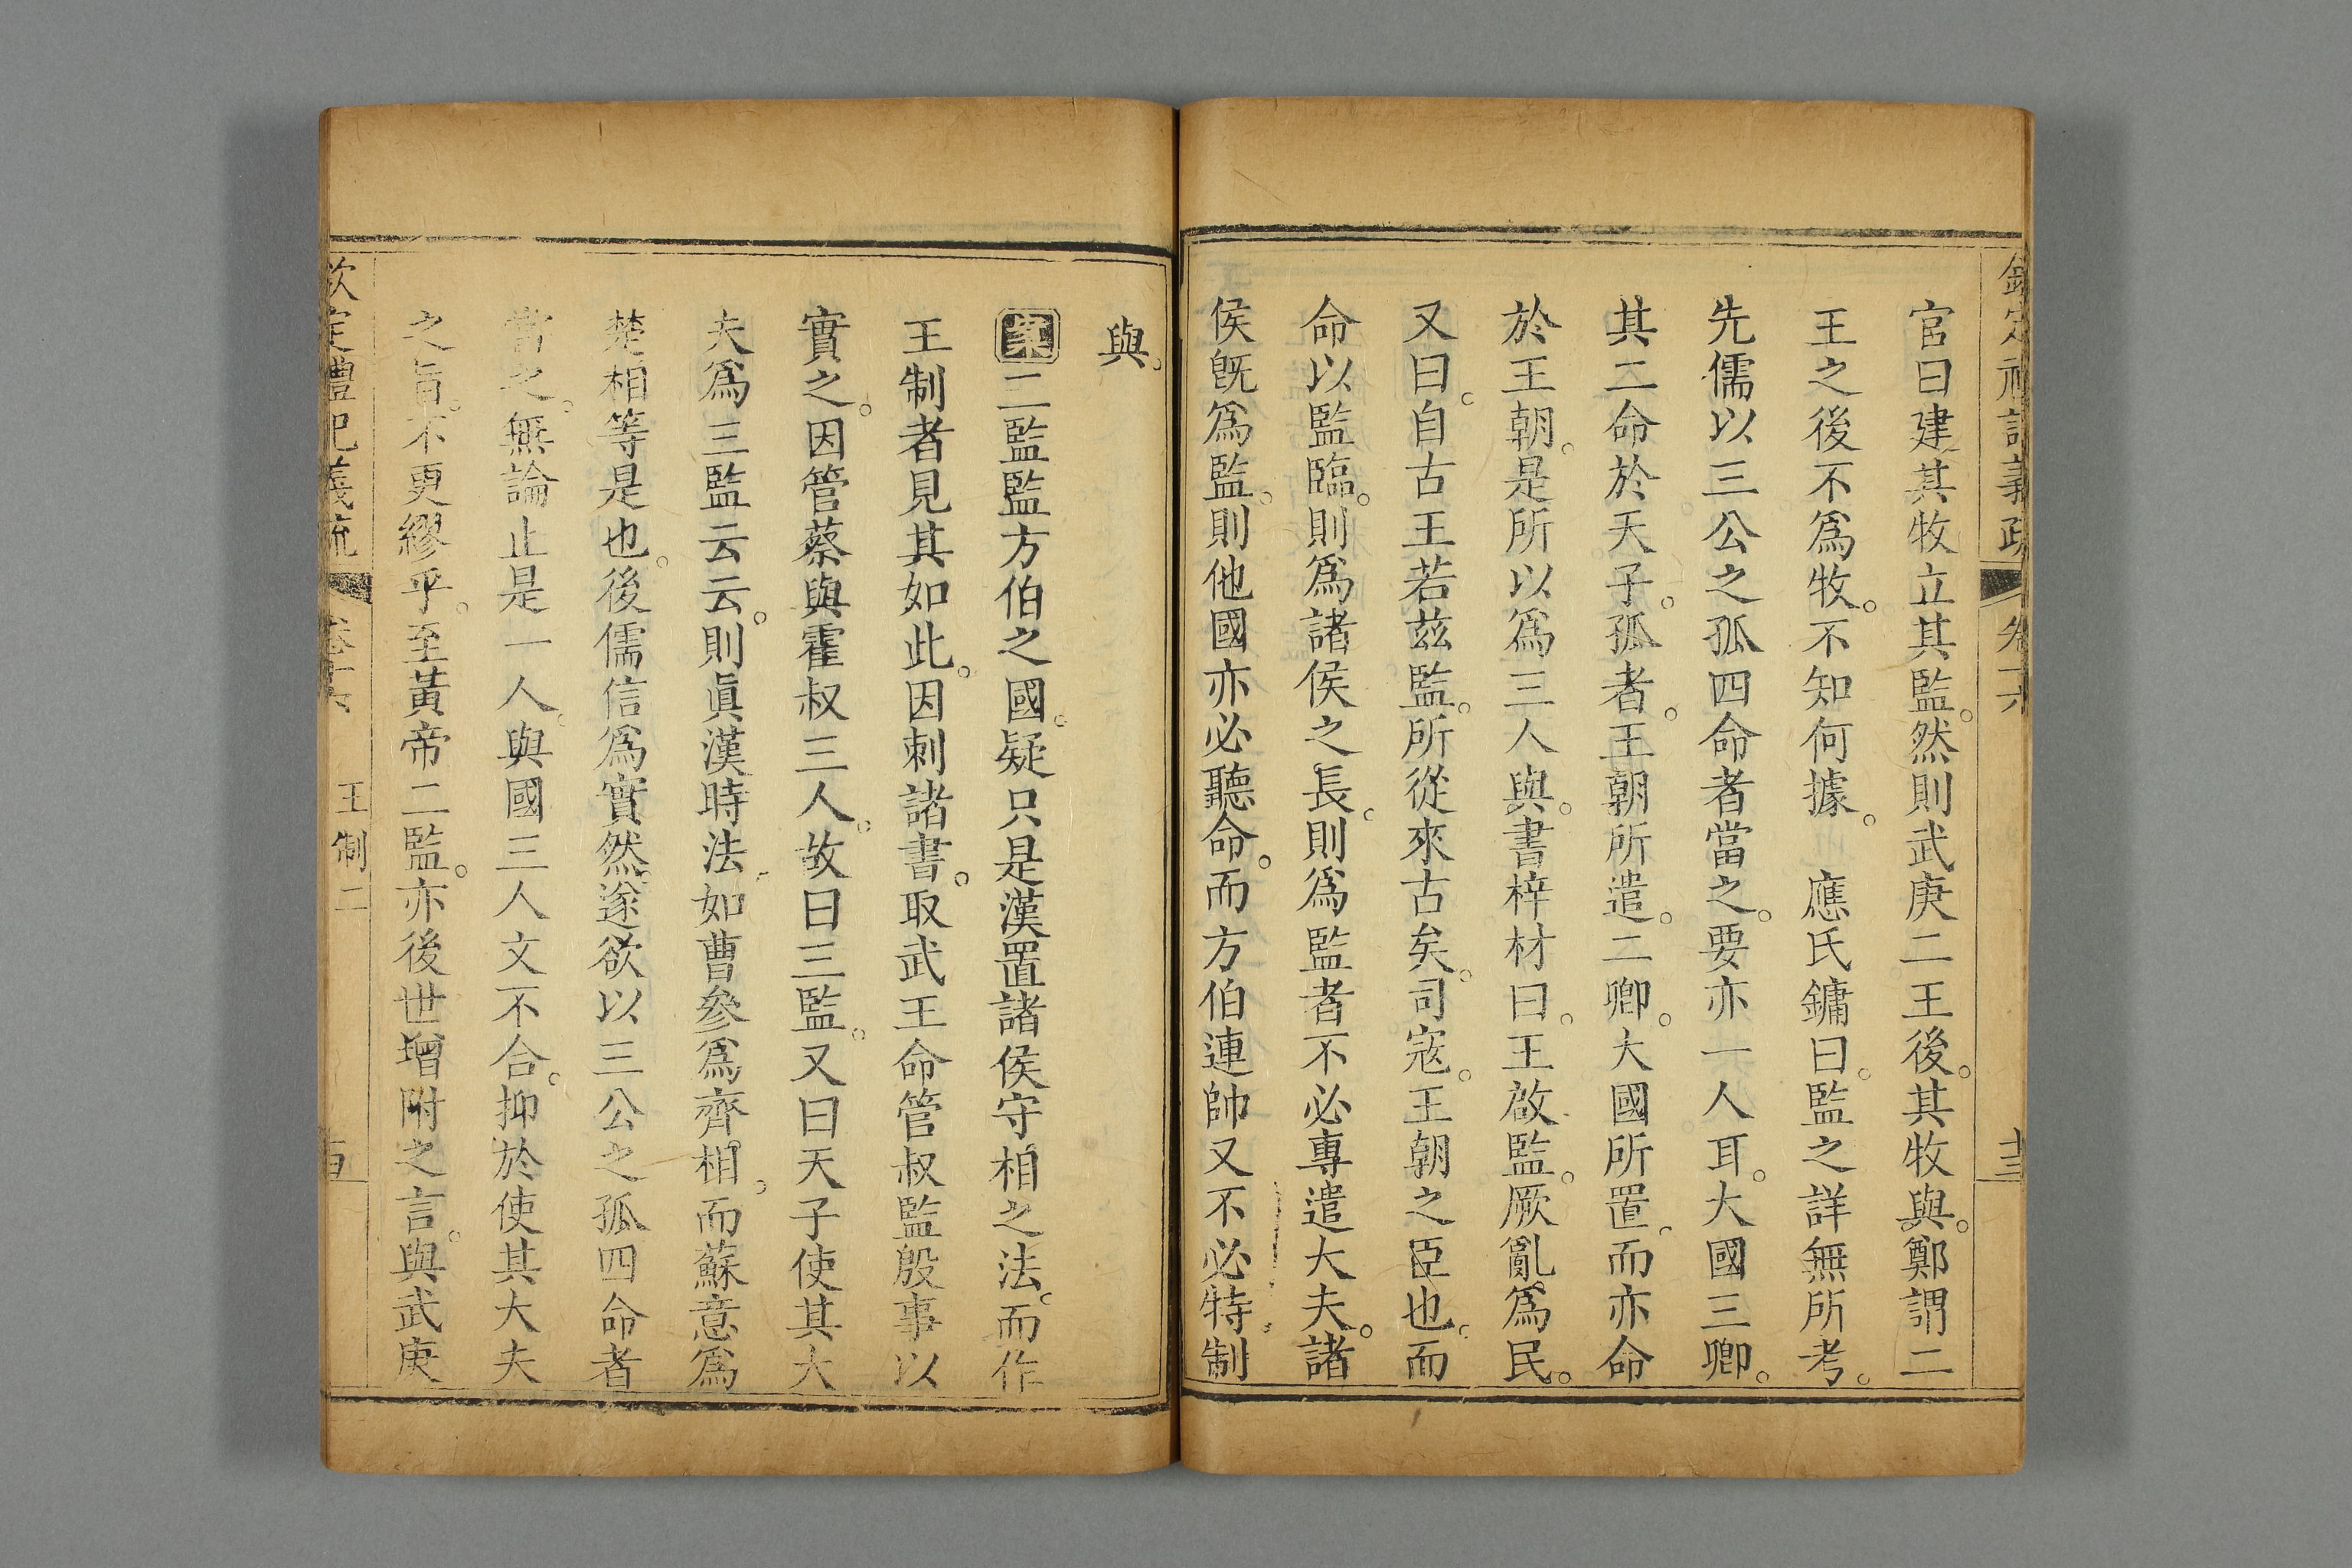 欽定禮記義疏 卷十六 十三
官曰建其牧立其監。然則武庚二王後。其牧與。鄭謂二
王之後不爲牧。不知何據。 應氏鏞曰。監之詳無所考。
先儒以三公之孤四命者當之。要亦一人耳。大國三卿。
其二命於天子。孤者。王朝所遣。二卿。大國所置。而亦命
於王朝。是所以爲三人與。書梓材曰。王啟監。厥亂爲民。
又曰。自古王若茲監。所從來古矣。司寇。王朝之臣也。而
命以監臨。則爲諸侯之長。則爲監者不必專遣大夫。諸
侯旣爲監。則他國亦必聽命。而方伯連帥又不必特制
與。
案二監監方伯之國。疑只是漢置諸侯守相之法。而作
王制者見其如此。因刺諸書。取武王命管叔監殷事以
實之。因管蔡與霍叔三人。故曰三監。又曰天子使其大
夫爲三監云云。則眞漢時法。如曹參爲齊相。而蘇意爲
楚相等是也。後儒信爲實然。遂欲以三公之孤四命者
當之。無論止是一人。與國三人文不合。抑於使其大夫
之旨。不更繆乎。至黃帝二監。亦後世增附之言。與武庚
欽定禮記義疏 卷十六 王制二